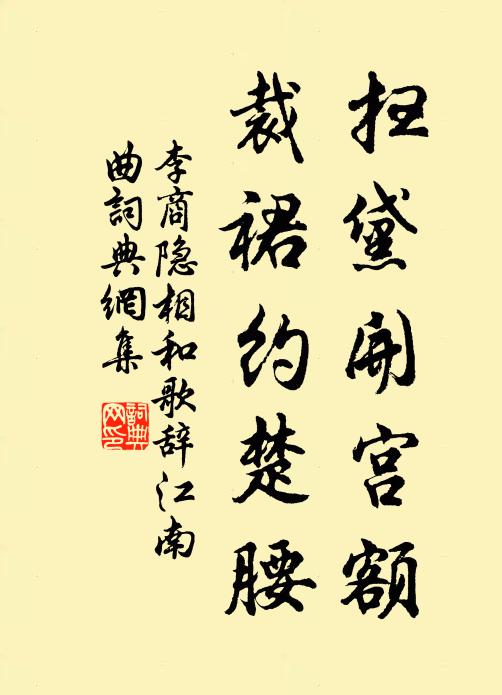 扫黛开宫额
裁裙约楚腰
李商隐相和歌辞江南
曲词典網集
詞典
网印